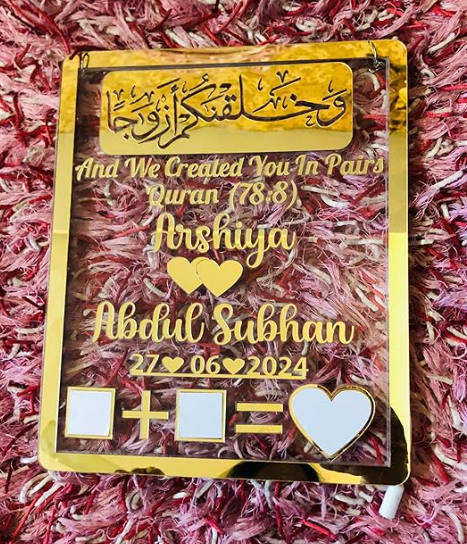 وخلقنكم أزوجا
And We Created You In Pairs
Quran (78:8)
Arshiya
Abdul Subhan
27♥06♥2024
+ =